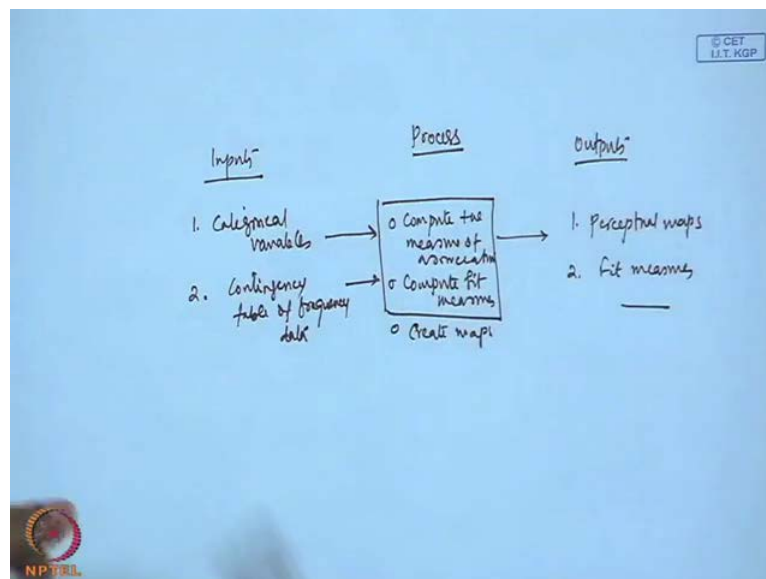 © CET
I.I.T. KGP
Inputs
Process
Outputs
1. Categorical
variables
2. Contingency
table of frequency
data
o Compute the
measure of
association
o Compute fit
measures
o Create maps
1. Perceptual maps
2. Fit measures
NPTEL